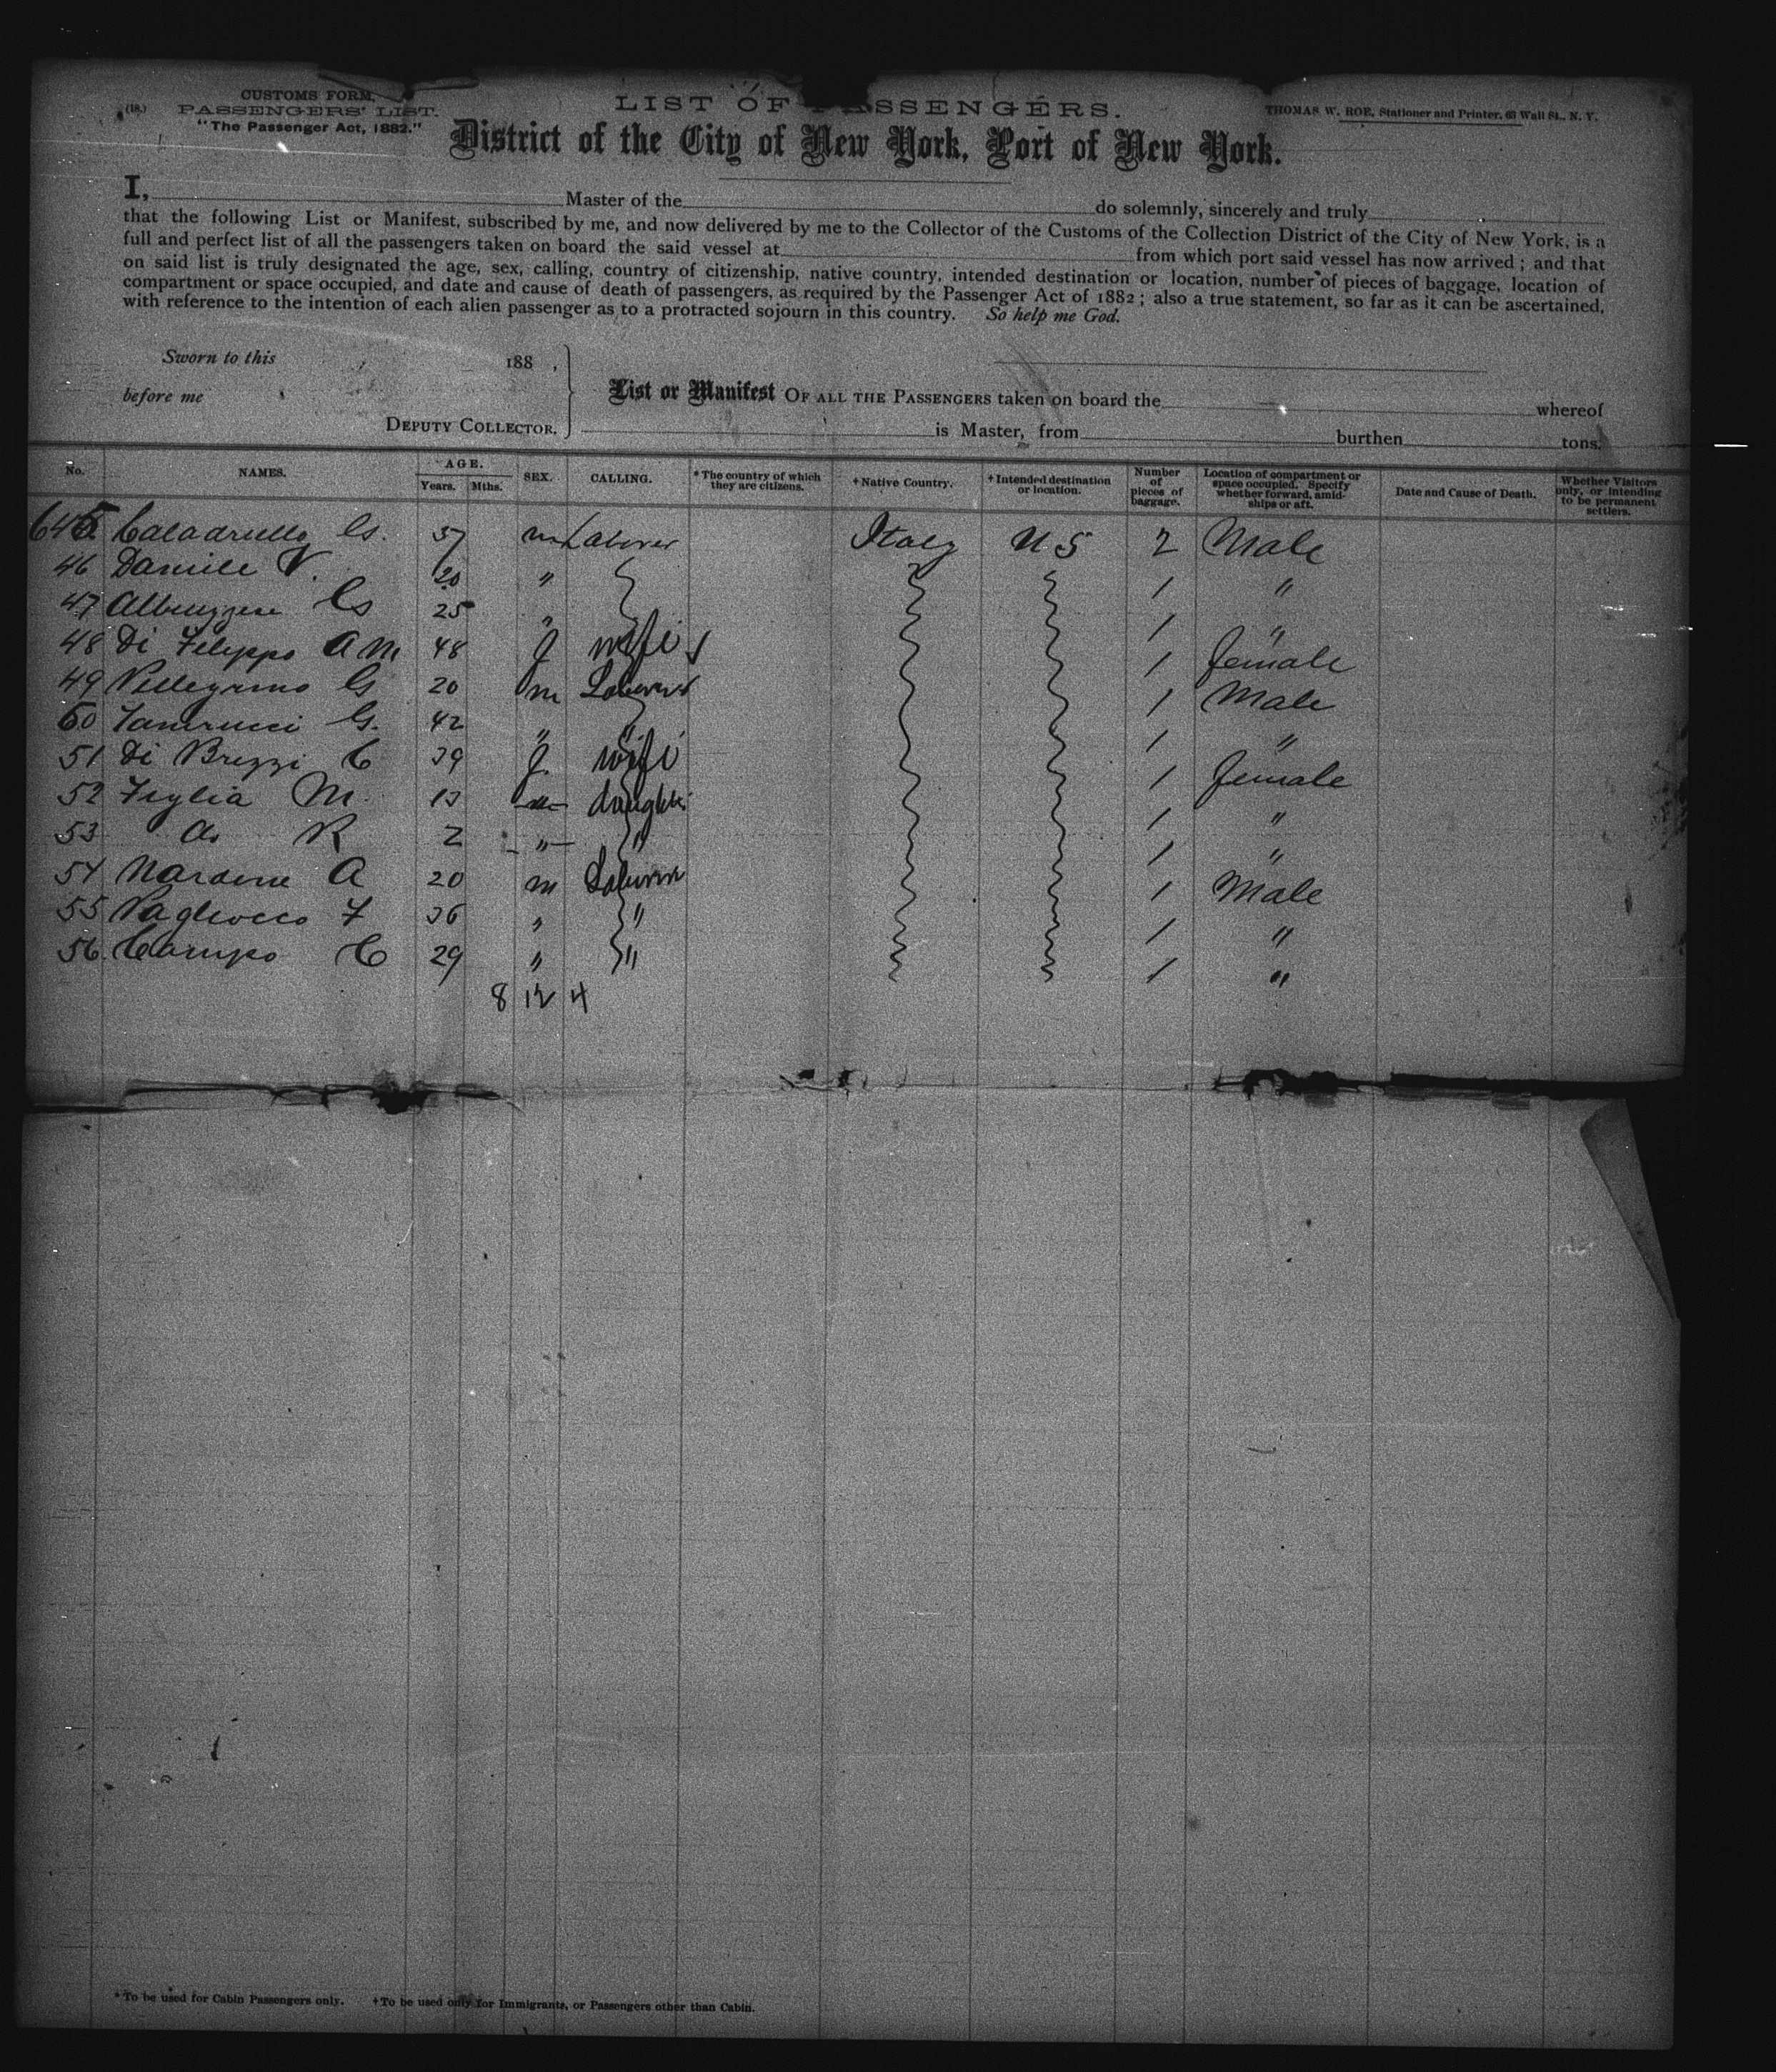 (18.)
CUSTOMS FORM,
PASSENGERS' LIST.
"The Passenger Act, 1882."
LIST OF PASSENGERS.
THOMAS W. ROE, Stationer and Printer, 63 Wall St., N. Y.
District of the City of New York, Port of New York.
I, Master of the do solemnly, sincerely and truly
that the following List or Manifest, subscribed by me, and now delivered by me to the Collector of the Customs of the Collection District of the City of New York, is a
full and perfect list of all the passengers taken on board the said vessel at from which port said vessel has now arrived; and that
on said list is truly designated the age, sex, calling, country of citizenship, native country, intended destination or location, number of pieces of baggage, location of
compartment or space occupied, and date and cause of death of passengers, as required by the Passenger Act of 1882; also a true statement, so far as it can be ascertained,
with reference to the intention of each alien passenger as to a protracted sojourn in this country. So help me God.
Sworn to this 188 ,
before me
DEPUTY COLLECTOR.
List or Manifest OF ALL THE PASSENGERS taken on board the whereof
is Master, from burthen tons.
No. NAMES. AGE. Years. Mths. SEX. CALLING. *The country of which they are citizens. +Native Country. +Intended destination or location. Number of pieces of baggage. Location of compartment or space occupied. Specify whether forward, amidships or aft. Date and Cause of Death. Whether Visitors only, or intending to be permanent settlers.
645 G. 37 m Laborer Italy U S 2 Male
46 Daniele V. 20 " 1 "
47 Albruzzese G 25 " 1 "
48 Di Filippo A M 48 f wife 1 female
49 Pellegrino G 20 m Laborer 1 Male
50 G. 42 " " 1 "
51 Di Brezzi C 39 f. wife 1 female
52 Figlia M. 13 m daughter 1 "
53 do R 2 " " 1 "
54 Nardone A 20 m Laborer 1 Male
55 Pagliocco F 36 " " 1 "
56 Campo C 29 " " 1 "
8 12 4
*To be used for Cabin Passengers only. +To be used only for Immigrants, or Passengers other than Cabin.